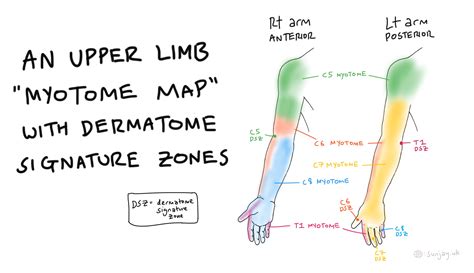 AN UPPER LIMB
"MYOTOME MAP"
WITH DERMATOME
SIGNATURE ZONES
DSZ = dermatome
signature
zone
Rt arm
ANTERIOR
Lt arm
POSTERIOR
C5 MYOTOME
C5
DSZ
C6 MYOTOME
T1
DSZ
C7 MYOTOME
C8 MYOTOME
C6
DSZ
T1 MYOTOME
C8
DSZ
C7
DSZ
sunjay.uk